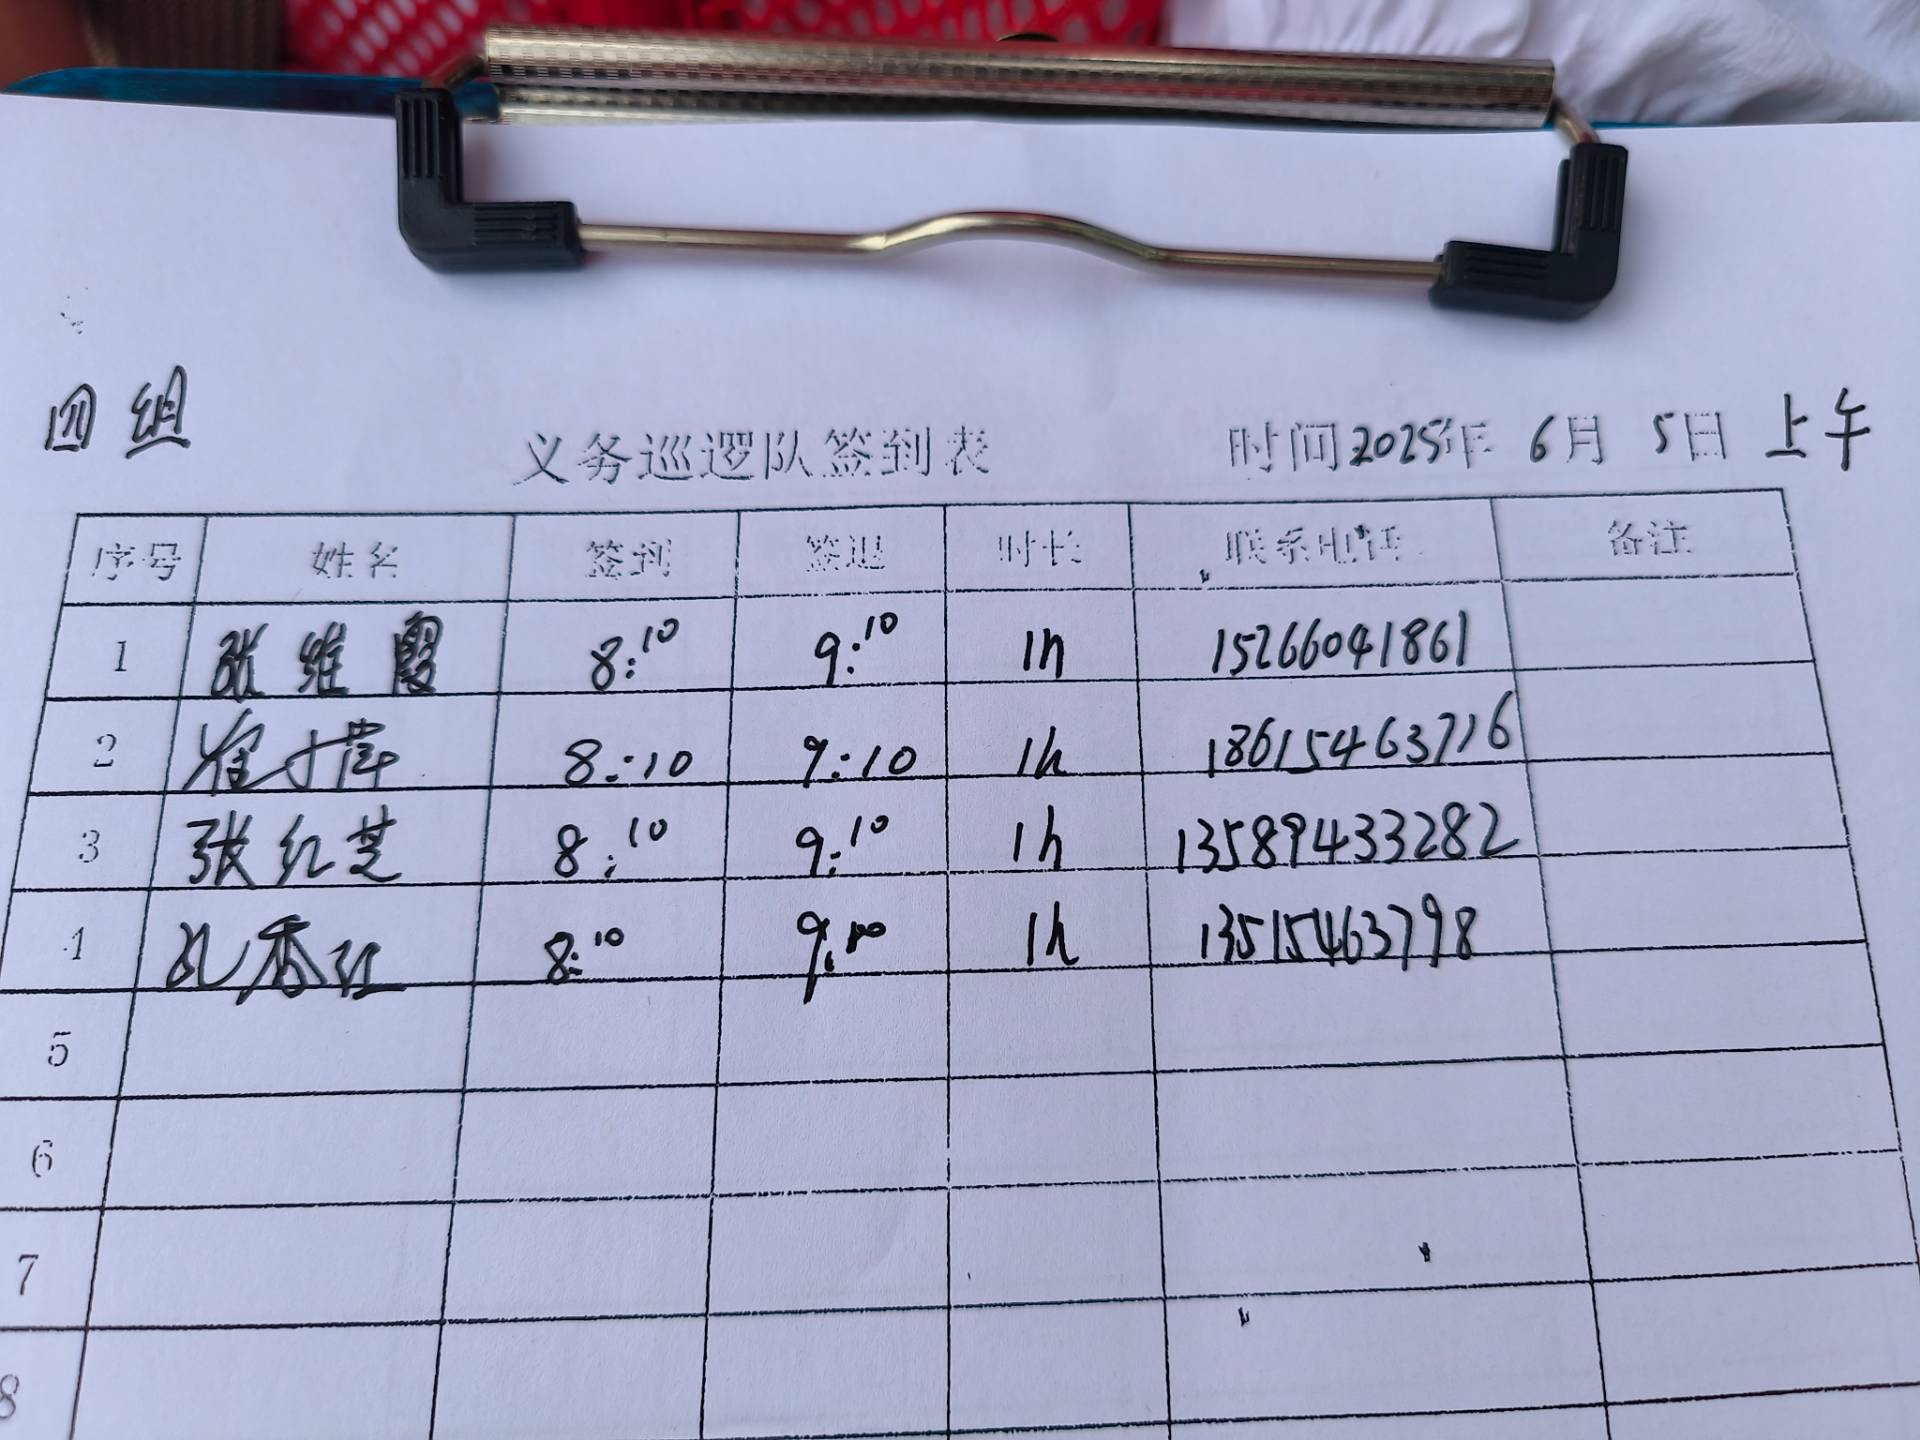 四组
义务巡逻队签到表 时间2025年 6月 5日 上午
序号 姓名 签到 签退 时长 联系电话 备注
1 张维霞 8:10 9:10 1h 15266041861
2 8:10 9:10 1h 18615463716
3 张红芝 8:10 9:10 1h 13589433282
4 孔香红 8:10 9:10 1h 13515463798
5
6
7
8